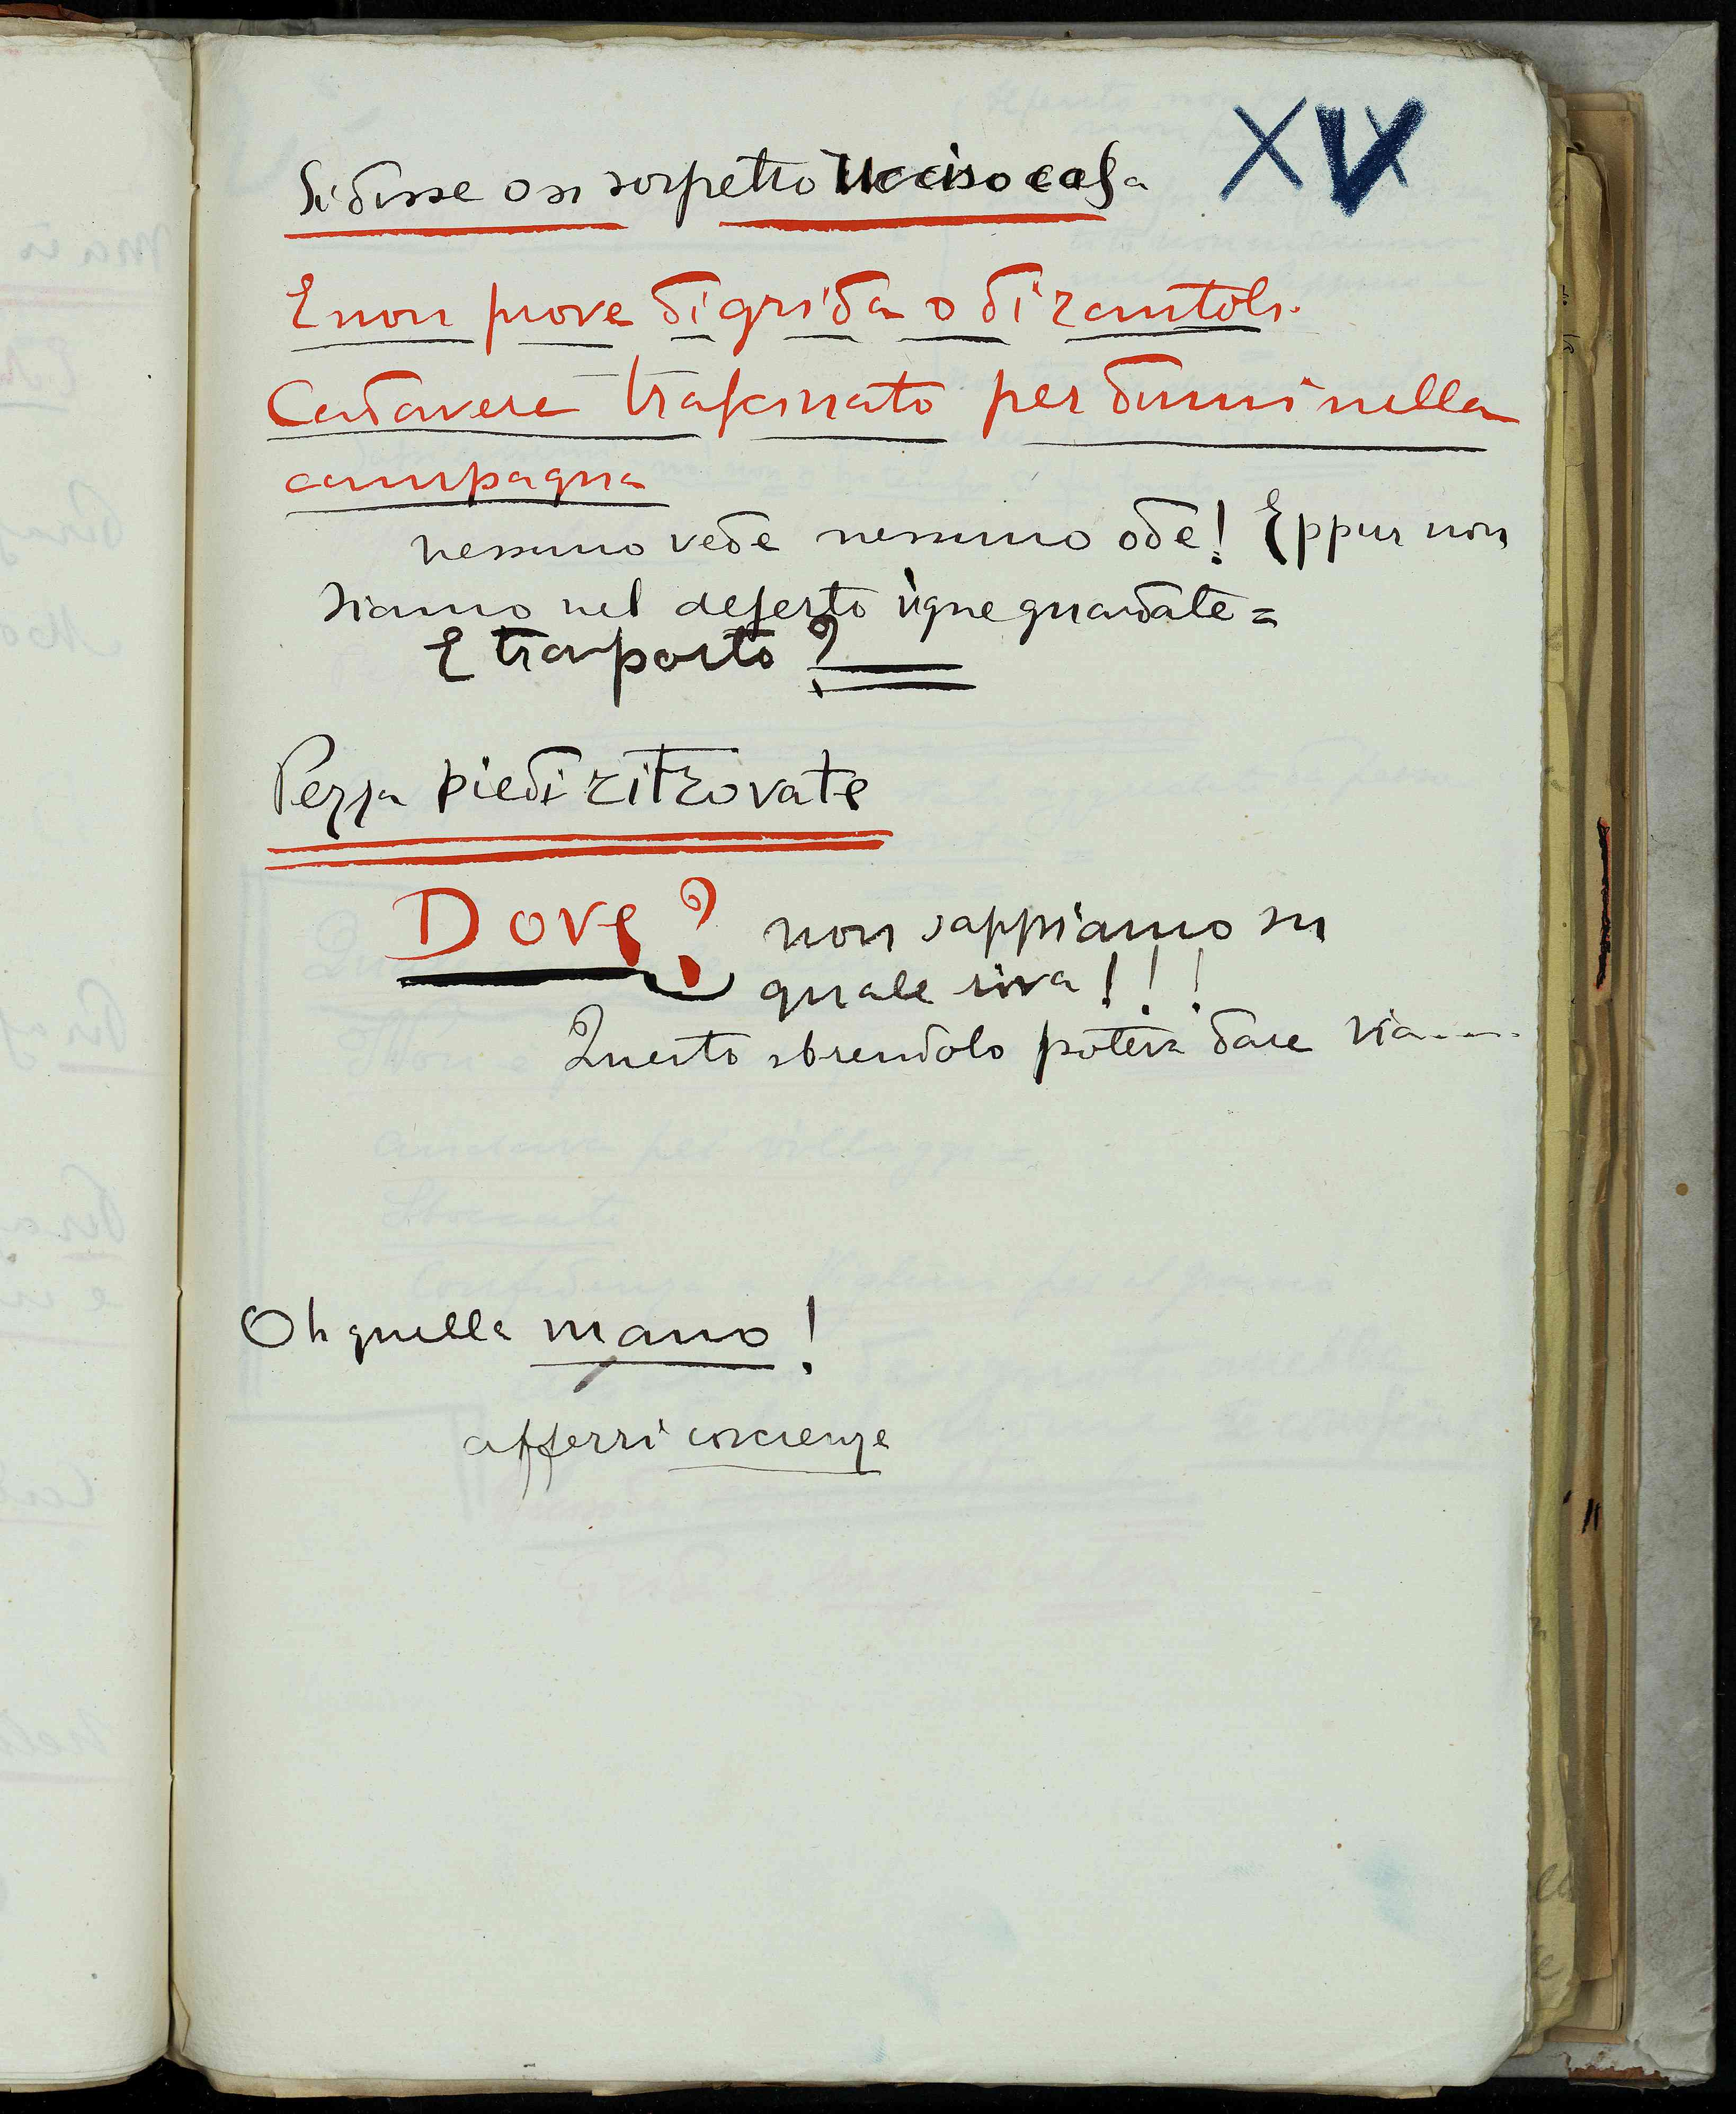 XV
Si disse o si sospettò Ucciso casa
E non prove di grida o di rantoli.
Cadavere trascinato per dumi nella
campagna
nessuno vede nessuno ode! Eppur non
siamo nel deserto vigne guardate =
E trasporto?
Pezza piedi ritrovate
Dove? non sappiamo su
quale riva!!!
Questo sbrendolo poteva dare via....
Oh quella mano!
afferri coscienze